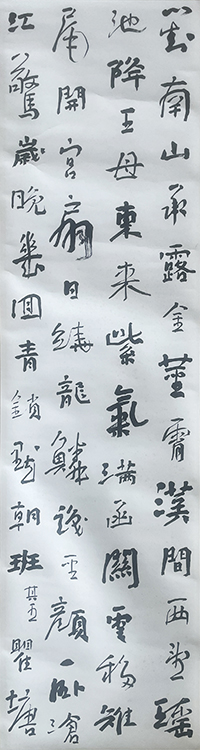 對南山承露金莖霄漢間西望瑤
池降王母東來紫氣滿函關雲移雉
尾開宮扇日繞龍鱗識聖顏一臥滄
江驚歲晚幾回青瑣點朝班其五瞿塘